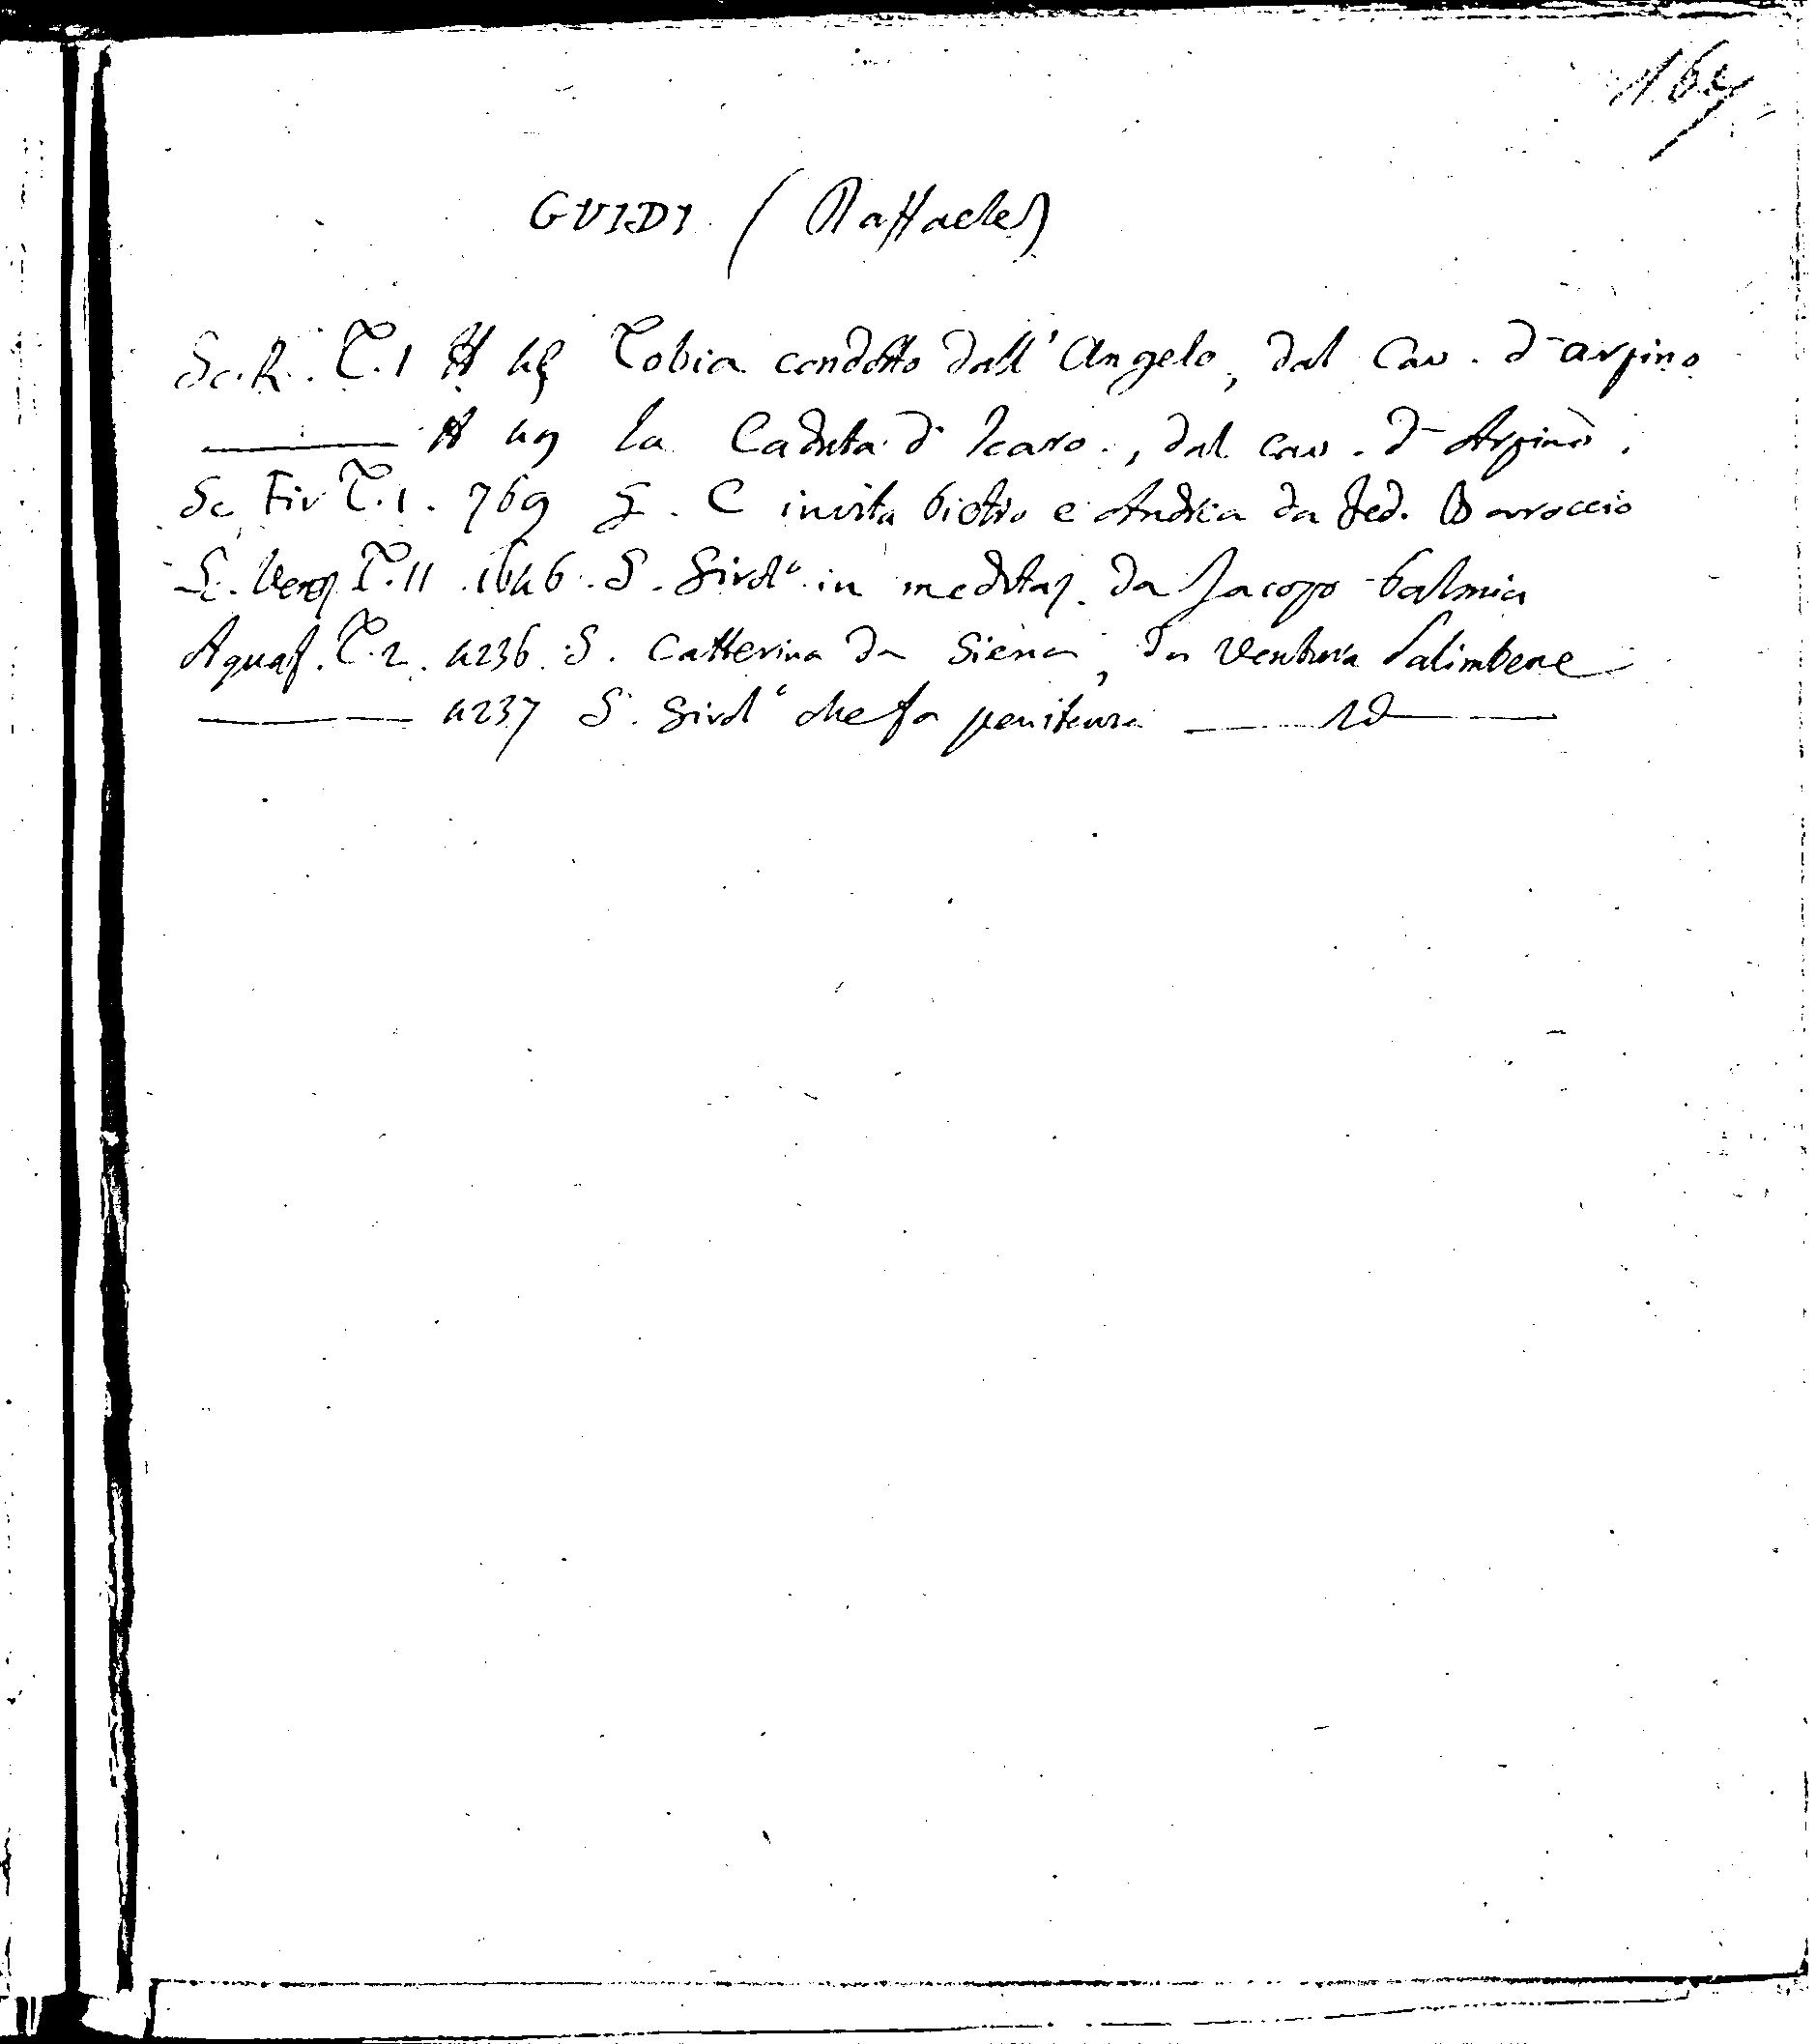 164
GUIDI (Raffaele)
Sc. R. T. 1 H 48 Tobia condotto dall' Angelo, dal Cav. d'arpino
——— H 49 la Caduta d' Icaro, dal cav. d' Arpino.
Sc. Fir T. 1. 769 G. C invita Pietro e Andrea da Fed. Barroccio
S. Venez T. 11 1646. S. Girol° in meditaz. da Jacopo Palmia
Aquaf. T. 2. 4236. S. Catterina da Siena, da Ventura Salimbene
——— 4237 S. Girol° che fa penitenza ——— Id ———